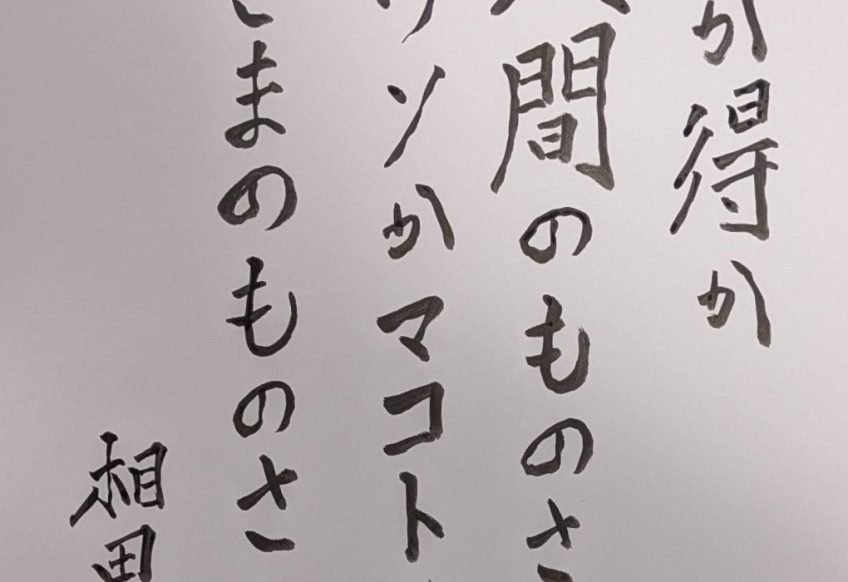 か得か
間のものさ
ソかマコト
まのものさ
相田